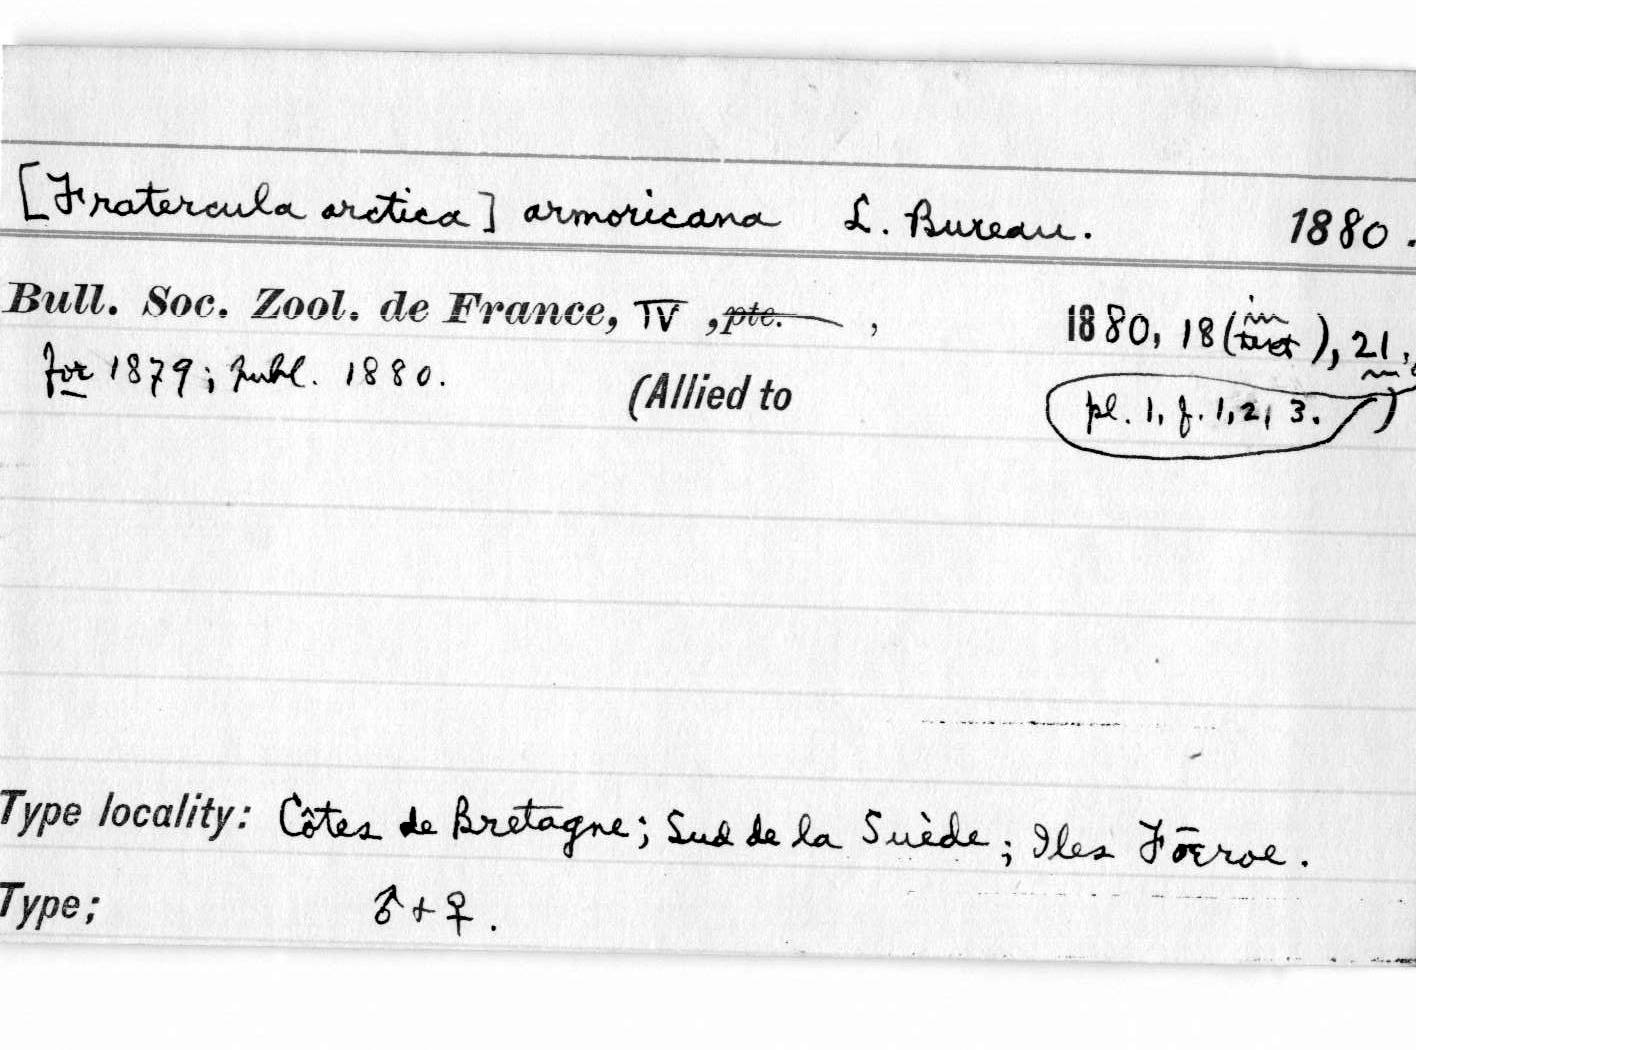 [Fratercula arctica] armoricana L. Bureau. 1880.
Bull. Soc. Zool. de France, IV, pte. , 1880, 18 (in text), 21,
for 1879; publ. 1880. (Allied to pl. 1, f. 1, 2, 3. )
Type locality: Côtes de Bretagne; Sud de la Suède; Iles Fœroe.
Type; ♂ + ♀.